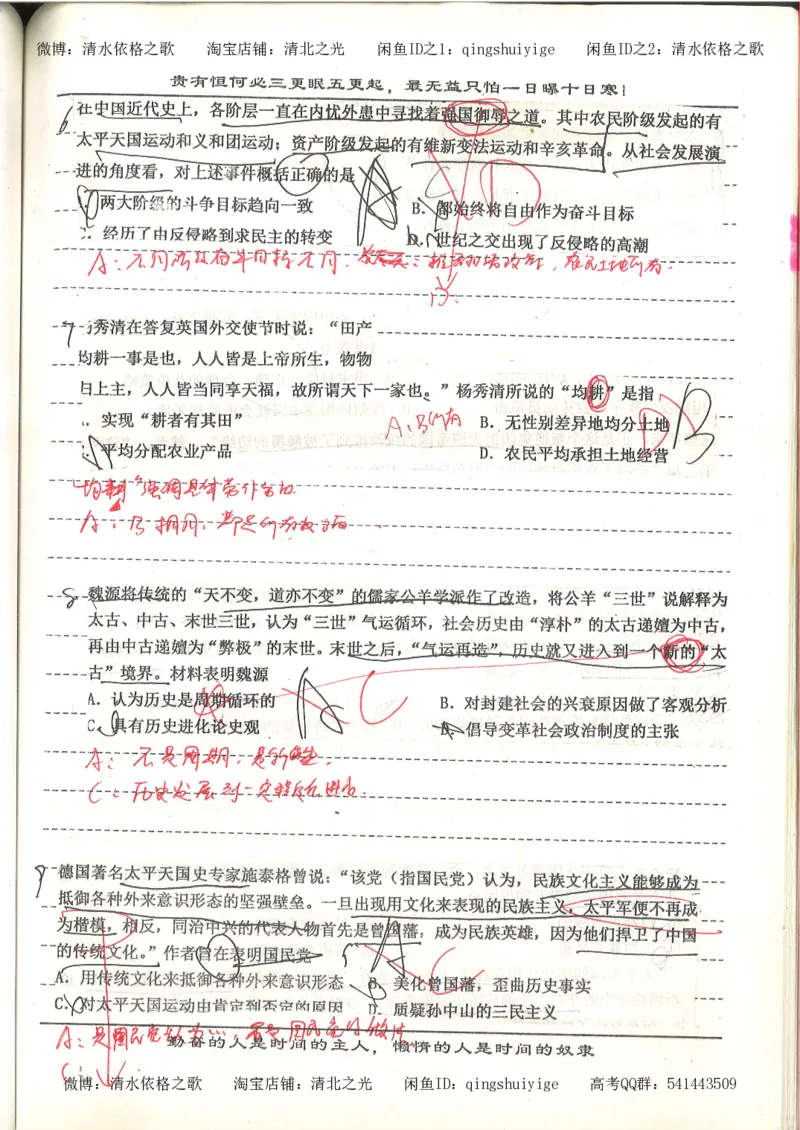 微博：清水依格之歌 淘宝店铺：清北之光 闲鱼ID之1：qingshuiyige 闲鱼ID之2：清水依格之歌
贵有恒何必三更眠五更起，最无益只怕一日曝十日寒！
6 在中国近代史上，各阶层一直在内忧外患中寻找着强国御辱之道。其中农民阶级发起的有
太平天国运动和义和团运动；资产阶级发起的有维新变法运动和辛亥革命。从社会发展演
进的角度看，对上述事件概括正确的是 A D
两大阶级的斗争目标趋向一致 B．都始终将自由作为奋斗目标
C．经历了由反侵略到求民主的转变 D．世纪之交出现了反侵略的高潮
A：不同阶级奋斗目标不同．
D．
7 秀清在答复英国外交使节时说：“田产
均耕一事是也，人人皆是上帝所生，物物
归上主，人人皆当同享天福，故所谓天下一家也。”杨秀清所说的“均耕”是指
实现“耕者有其田” B．无性别差异地均分土地
平均分配农业产品 D．农民平均承担土地经营
D B
“均耕”强调是
A：
8 魏源将传统的“天不变，道亦不变”的儒家公羊学派作了改造，将公羊“三世”说解释为
太古、中古、末世三世，认为“三世”气运循环，社会历史由“淳朴”的太古递嬗为中古，
再由中古递嬗为“弊极”的末世。末世之后，“气运再造”，历史就又进入到一个新的“太
古”境界。材料表明魏源 A C
A．认为历史是周期循环的 B．对封建社会的兴衰原因做了客观分析
C．具有历史进化论史观 D．倡导变革社会政治制度的主张
A：不是周期，是
C：历史发展到一定
9 德国著名太平天国史专家施泰格曾说：“该党（指国民党）认为，民族文化主义能够成为
抵御各种外来意识形态的坚强壁垒。一旦出现用文化来表现的民族主义，太平军便不再成
为楷模，相反，同治中兴的代表人物首先是曾国藩，成为民族英雄，因为他们捍卫了中国
的传统文化。”作者旨在表明国民党 A C
A．用传统文化来抵御各种外来意识形态 B．美化曾国藩，歪曲历史事实
C．对太平天国运动由肯定到否定的原因 D．质疑孙中山的三民主义
A：是国民党
勤奋的人是时间的主人，懒惰的人是时间的奴隶
C：
微博：清水依格之歌 淘宝店铺：清北之光 闲鱼ID：qingshuiyige 高考QQ群：541443509